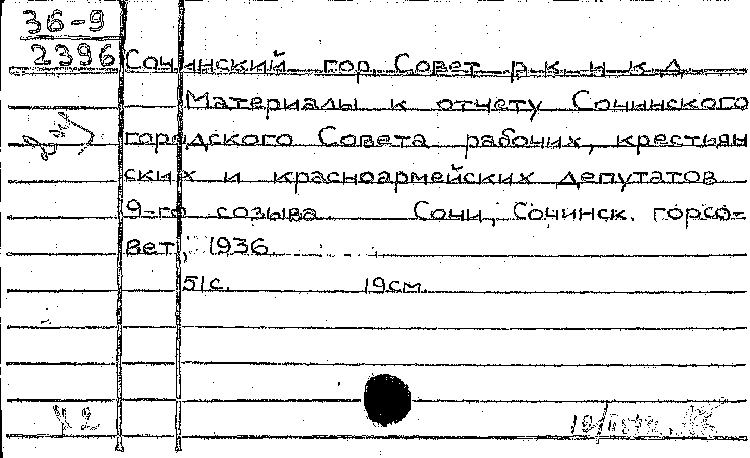 36-9
2396
Сочинский гор. Совет р. к. и к. д.
Материалы к отчету Сочинского
городского Совета рабочих, крестьян
ских и красноармейских депутатов
9-го созыва. Сочи, Сочинск. горсо-
вет, 1936.
51с. 19см.